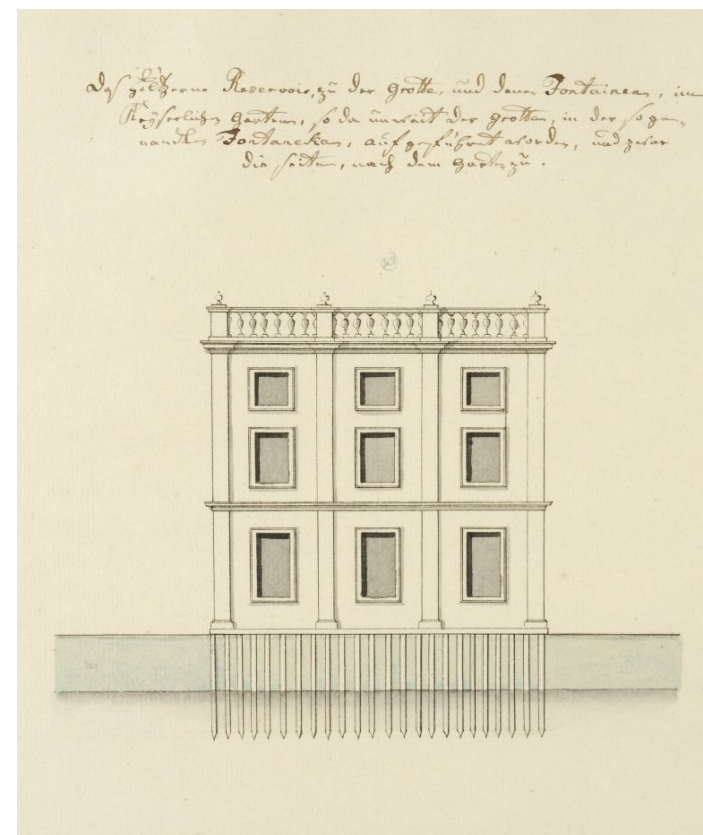 Das höltzerne Reservoir, zu der Grotte, und denen Fontainen, im
Keyserlichen Garten, so da unweit der Grotten, in der so ge„
nandten Fontancka, aufgeführet worden, und zwar
die seite, nach dem Garten zu.